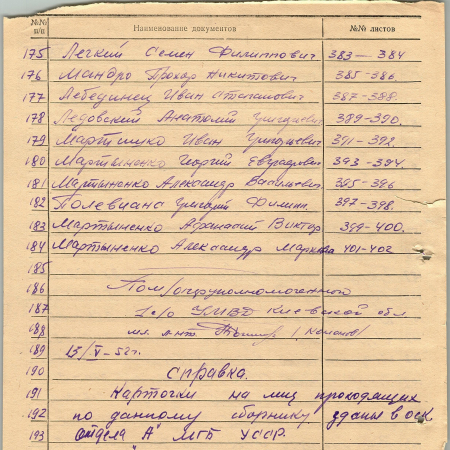 №№ п/п Наименование документов №№ листов
175 Легкий Семен Филиппович 383–384
176 Мандро Прохор Никитович 385-386.
177 Лебединец Иван Степанович 387-388.
178 Ледовский Анатолий Григориевич 389-390.
179 Мартышко Иван Григориевич 391-392
180 Мартыненко Георгий 393-394
181 Мартыненко Александр Васильевич 395-396
182 Григорий Филип. 397-398
183 Мартыненко Афанасий Виктор 399-400.
184 Мартыненко Александр Маркович 401-402
185
186 Пом/оперуполномоченного
187 УМГБ Киевской обл
188 мл. л-нт
189 15/V-52 г.
190 Справка.
191 Карточки на лиц проходящих
192 по данному сборнику сданы в
193 отдела "А" МГБ УССР.